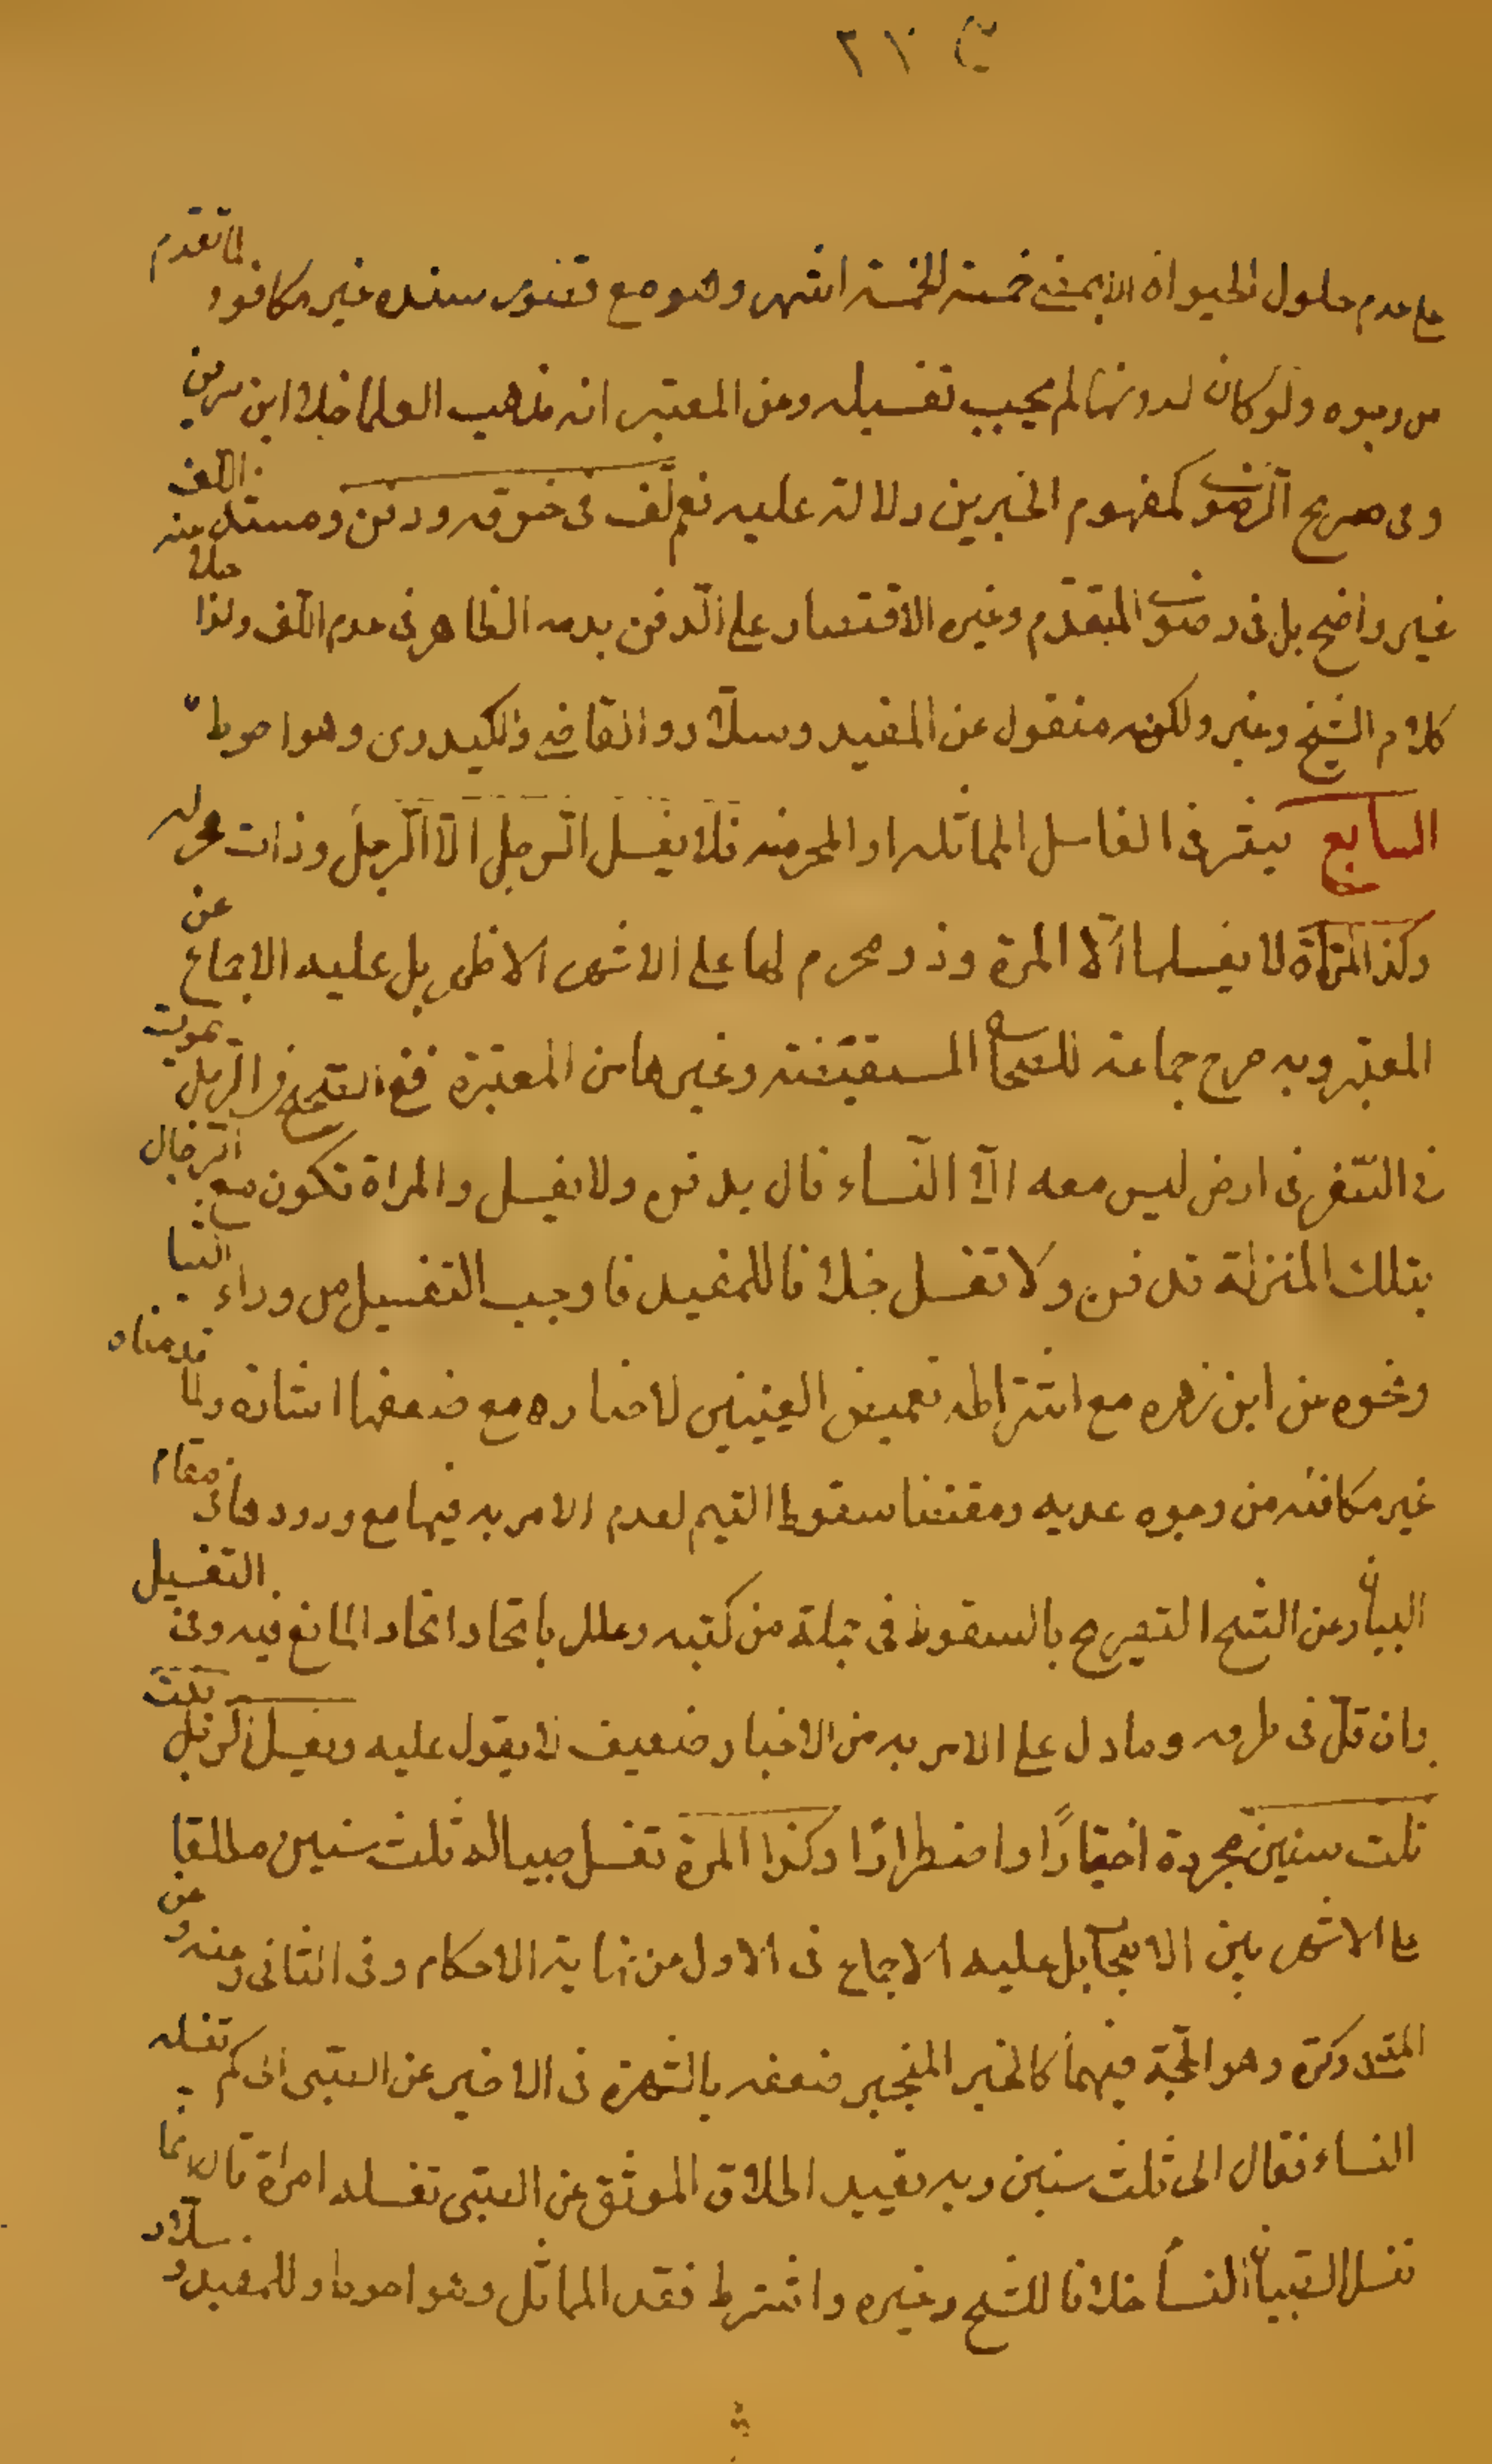 على عدم حلول الحيوة الا بمضي خمسة اشهر وهو مع قصور سنده غير مكافوء لما تقدم
من وجوه ولو كان لدونها لم يجب تغسيله وعن المعتبر انه مذهب العلما خلا ابن سيرين
وفى صريح الرضوي كمفهوم الخبرين دلالة عليه نعم لف فى خرقه ودفن ومستند اللف
غير واضح بل فى رضوي المتقدم وغيره الاقتصار على الدفن بدمه الظاهر فى عدم اللف ولذا خلا عنه
كلام الشيخ وغيره ولكنه منقول عن المفيد وسلار والقاضي والكيدري وهو احوط
السابع يعتبر فى الغاسل المماثله او المحرميه فلا يغسل الرجل الا الرجل وذات محرم له
وكذا المرأة لا يغسلها الا المرة وذو محرم لها على الاشهر الاظهر بل عليه الاجماع عن
المعتبر وبه صرح جماعة للصحاح المستفيضة وغيرها من المعتبرة ففى الصحيح فى الرجل يموت
فى السفر فى ارض ليس معه الا النساء قال يدفن ولا يغسل والمراة تكون مع الرجال
بتلك المنزلة تدفن ولا تغسل خلافا للمفيد فاوجب التغسيل من وراء الثياب
ونحوه عن ابن زهره مع اشتراطه تغميض العينين لاخبار هى مع ضعفها اسنادا ولما قدمناه
غير مكافئه من وجوه عديدة ومقتضاها سقوط التيمم لعدم الامر به فيها مع ورودها فى مقام
البيان وعن الشيخ التصريح بالسقوط فى جملة من كتبه وعلل باتحاد اتحاد المانع فيه وفى التغسيل
وان قل فى طرفه وما دل على الامر به من الاخبار ضعيف لا يعول عليه ويغسل الرجل بنت
ثلث سنين مجردة اختيارًا واضطرارًا وكذا المرة تغسل صبيا له ثلث سنين مطلقا
على الاشهر بين الاصحاب بل عليه الاجماع فى الاول عن نهاية الاحكام وفى الثانى عنه وعن
المنتهى وكرة وهو الحجة فيهما كالخبر المنجبر ضعفه بالشهرة فى الاخير عن الصبى الى كم تغسله
النساء فقال الى ثلث سنين وبه تقييد اطلاق الموثق عن الصبى تغسله امراة قال انما
تغسل الصبيان النسأ خلافا للشيخ وغيره واشترط فقد المماثل وهو احوط وللمفيد وسلار